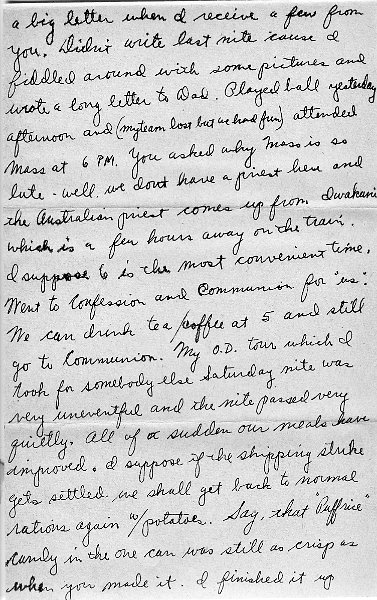 a big letter when I receive a few from
you. Didn't write last nite 'cause I
fiddled around with some pictures and
wrote a long letter to Dad. Played ball yesterday
afternoon and (my team lost but we had fun) attended
Mass at 6 P.M. You asked why Mass is so
late - well we don't have a priest here and
the Australian priest comes up from Iwakuni
which is a few hours away on the train.
I suppose 6 is the most convenient time.
Went to Confession and Communion for "us".
We can drink tea/coffee at 5 and still
go to Communion. My O.D. tour which I
took for somebody else Saturday nite was
very uneventful and the nite passed very
quietly. All of a sudden our meals have
improved. I suppose if the shipping strike
gets settled we shall get back to normal
rations again w/potatoes. Say, that "Puffrice"
candy in the one can was still as crisp as
when you made it. I finished it up